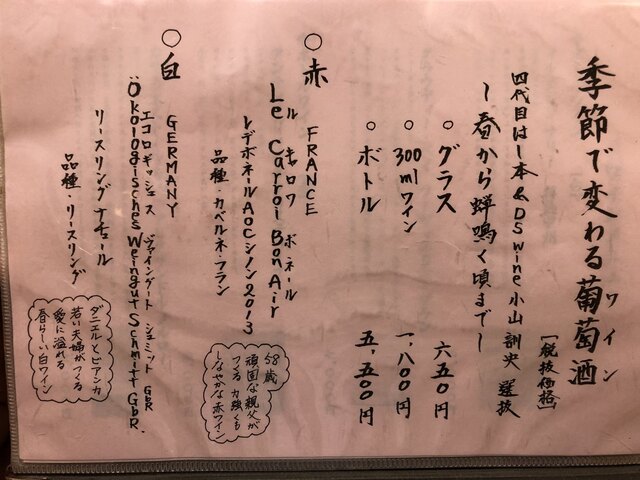 季節で変わる葡萄酒
ワイン
[税抜価格]
四代目は一本&DS wine 小山 訓史 選抜
ー春から蝉鳴く頃までー
○グラス 六五〇円
○300mlワイン 一、八〇〇円
○ボトル 五、五〇〇円
○赤 FRANCE
ル キャロワ ボネール
Le Carroi Bon Air
レデボネールAOCシノン2013
品種・カベルネ・フラン
58歳
頑固な親父が
つくる力強くも
しなやかな赤ワイン
○白 GERMANY
エコロギッシェス ヴァイングート シュミット GbR
Ökologisches Weingut Schmitt GbR.
リースリングナチュール
品種・リースリング
ダニエルとビアンカ
若い夫婦がつくる
愛に溢れる
春らしい白ワイン